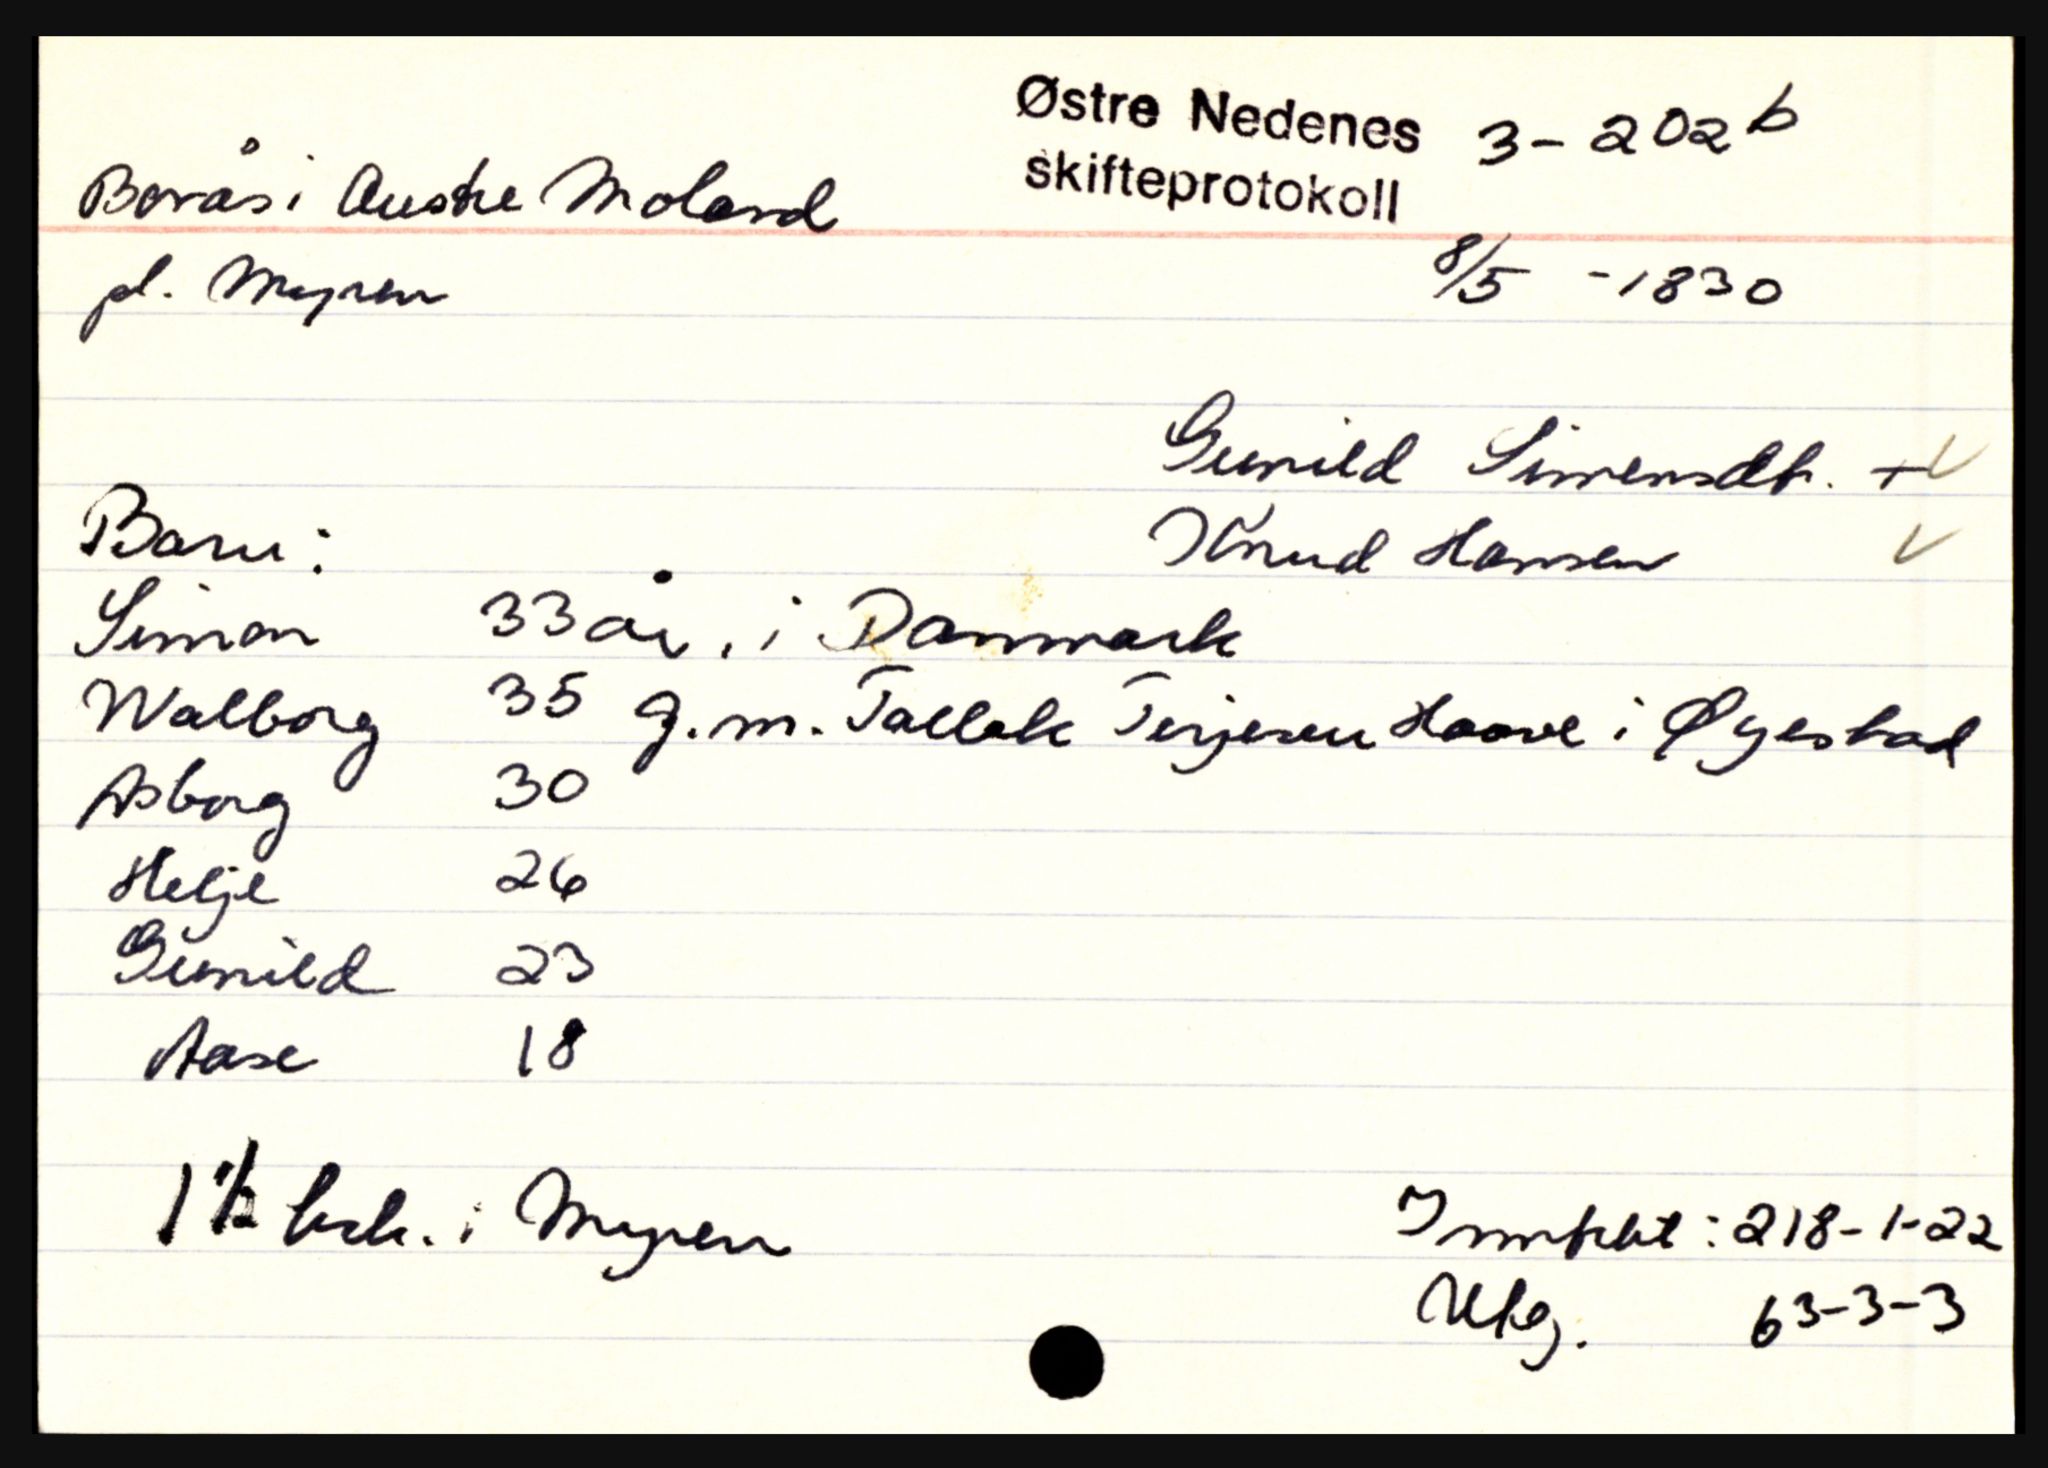 Østre Nedenes 3-202b
skifteprotokoll
Borås i Austre Moland
pl. Myren
8/5 -1830
Gunild Simensdt. +
Knud Hansen
Barn:
Simon 33 år, i Danmark
Walborg 35 g.m. Tallak Terjesen Haave i Øyestad
Asborg 30
Helje 26
Gunild 23
Aase 18
1 1/2 hd. i Myren
: 218-1-22
Utlg. 63-3-3